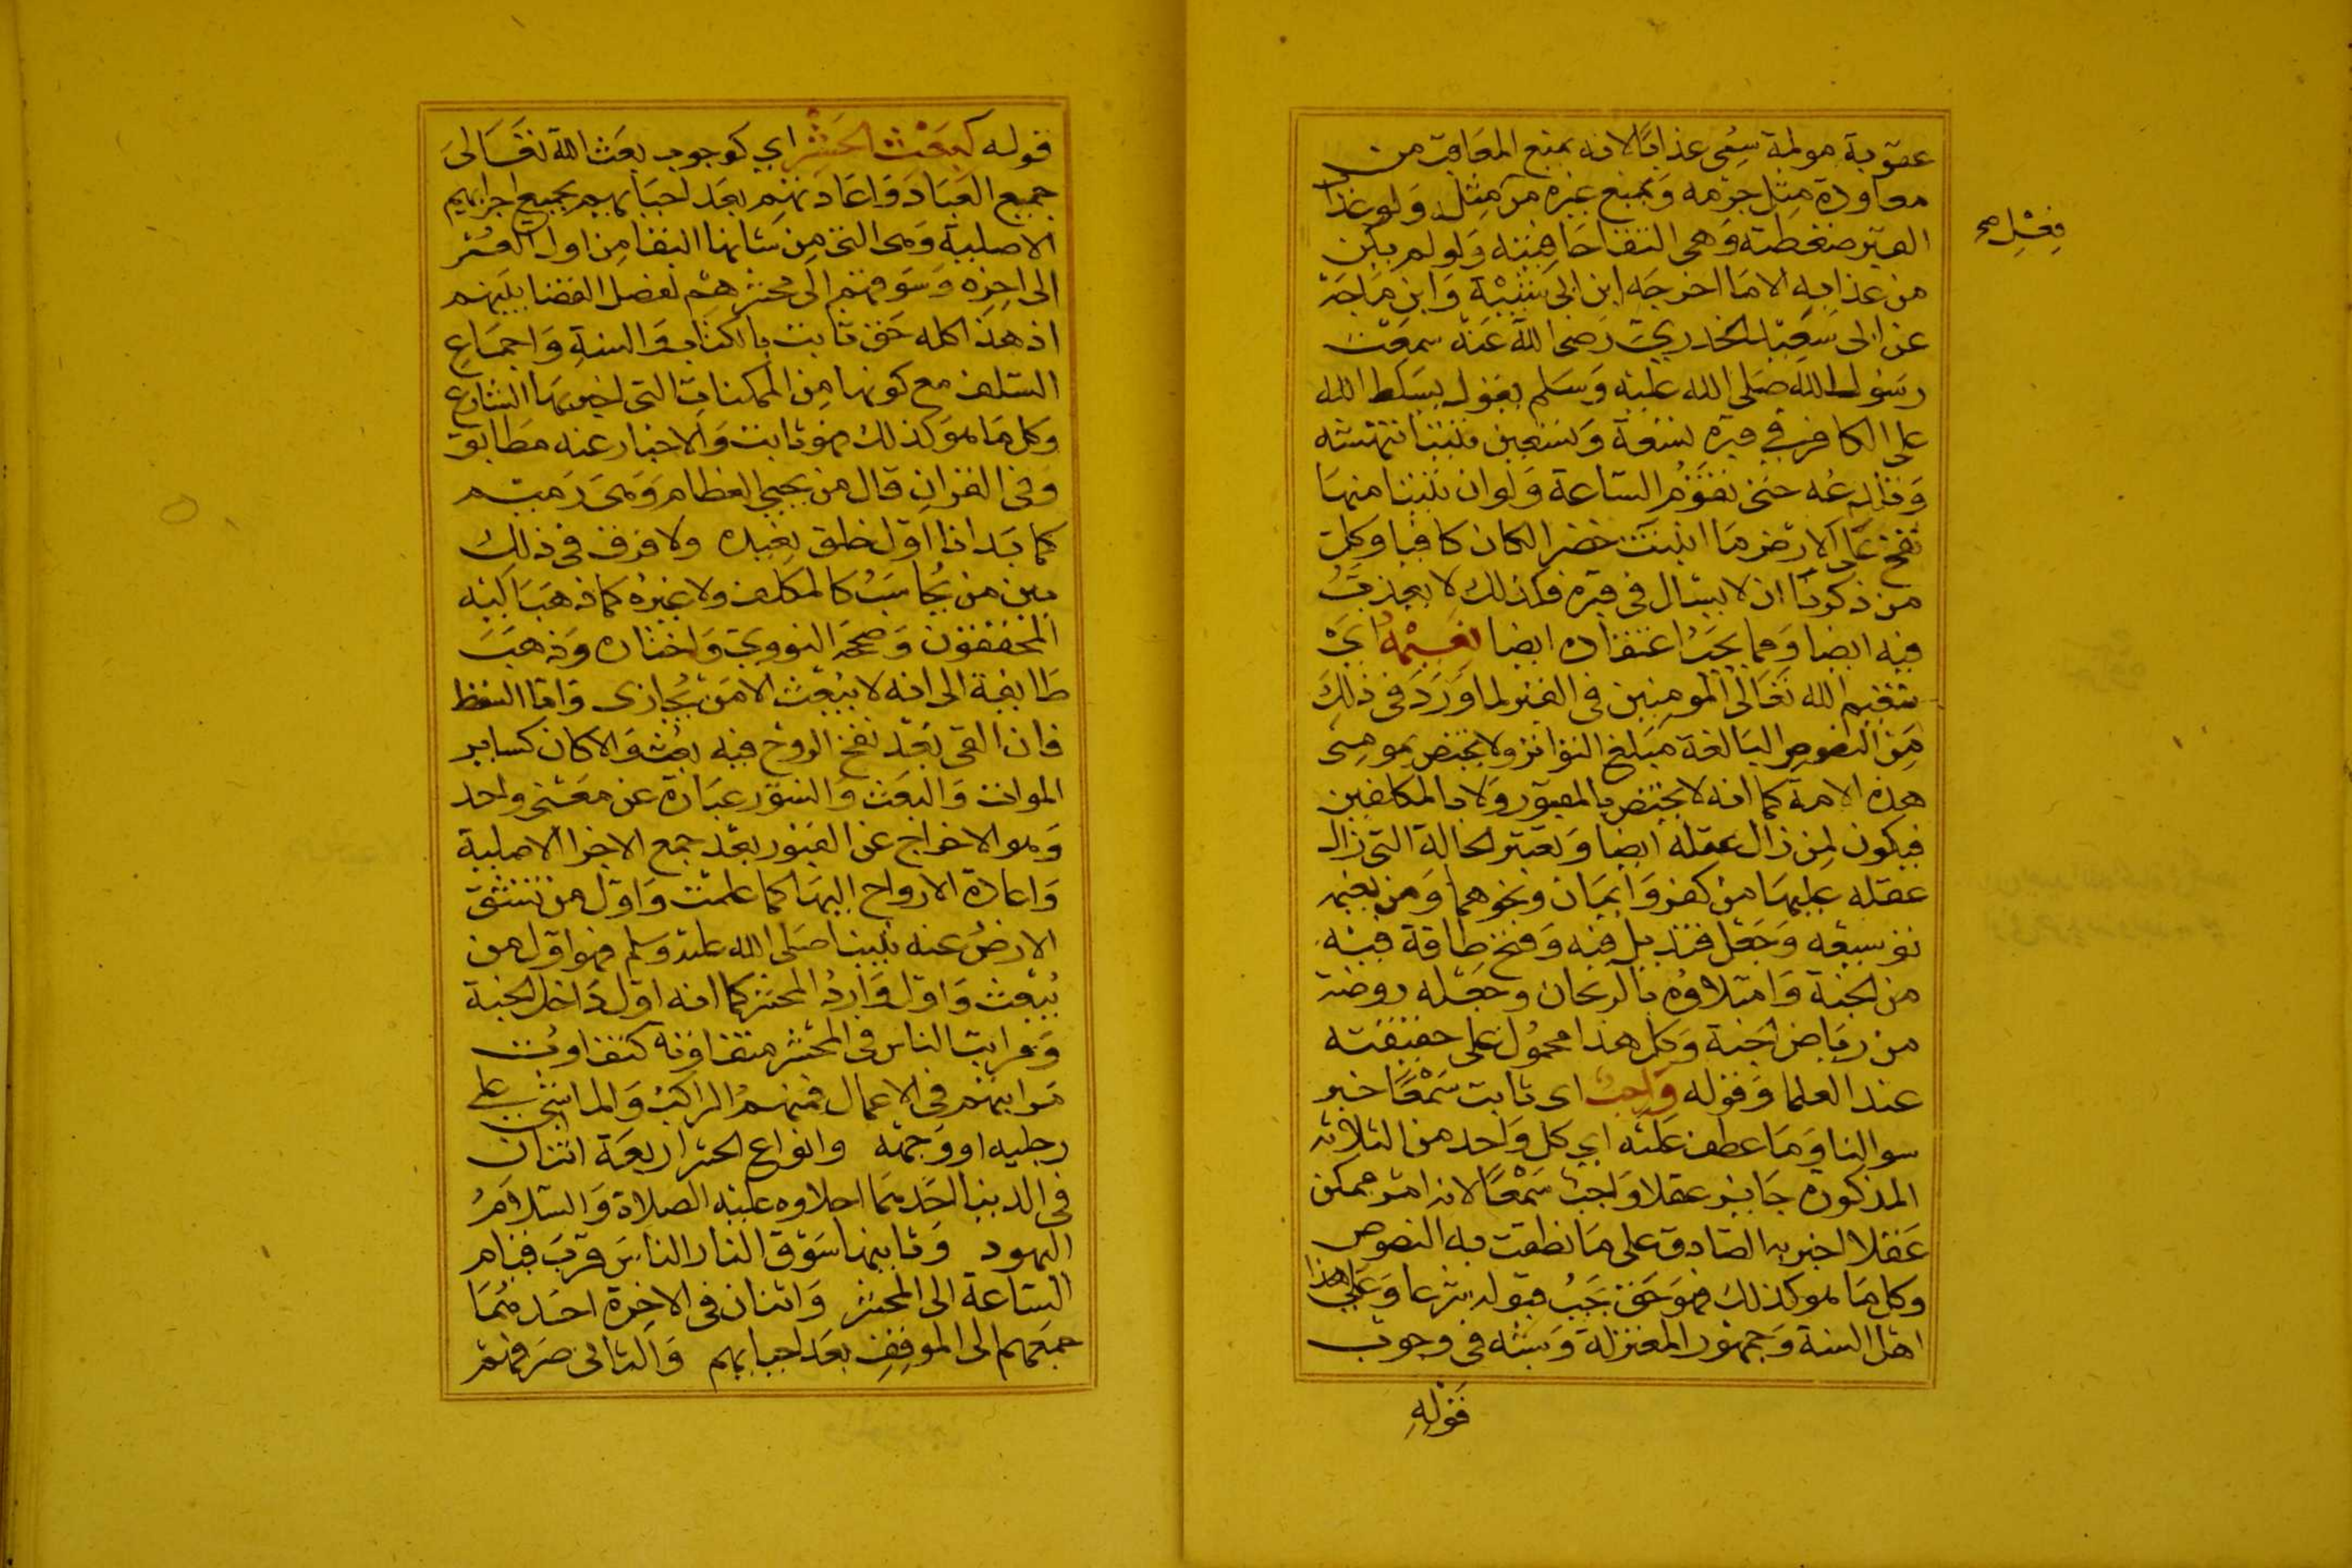 عقوبة مولمة سمي عذابا لانه يمنع المعاقب من
معاودة مثل جرمه ويمنع غيره من مثل ومن عذاب
فعل صح
القبر ضغطته وهي التقا حافتيه ولو لم يكن
من عذابه الا ما اخرجه ابن ابي شيبة وابن ماجة
عن ابي سعيد الخدري رضي الله عنه سمعت
رسول الله صلى الله عليه وسلم يقول يسلط الله
على الكافر في قبره تسعة وتسعين تنينا تنهشه
وتلدغه حتى تقوم الساعة ولو ان تنينا منها
نفخ على الارض ما انبتت خضرا لكان كافيا وكل
من ذكرنا ان لا يسال في قبره فكذلك لا يعذب
فيه ايضا ومما يجب اعتقاده ايضا نعيمه اي
تنعيم الله تعالى المومنين في القبر لما ورد في ذلك
من النصوص البالغة مبلغ التواتر ولا يختص بمومني
هذه الامة كما انه لا يختص بالمقبور ولا بالمكلفين
فيكون لمن زال عقله ايضا وتعتبر الحالة التي زال
عقله عليها من كفر وايمان ونحوهما ومن نعيمه
توسيعه وجعل قنديل فيه وفتح طاقة فيه
من الجنة وامتلاوه بالريحان وجعله روضة
من رياض الجنة وكل هذا محمول على حقيقته
عند العلما وقوله واجب اى ثابت سمعا خبر
سوالنا وما عطف عليه اي كل واحد من الثلاثة
المذكورة جايز عقلا واجب سمعا لانه امر ممكن
عقلا اخبر به الصادق على ما نطقت به النصوص
وكل ما هو كذلك فهو حق يجب قبوله شرعا وعلى هذا
اهل السنة وجمهور المعتزلة وشبه في وجوب
قوله
قوله كبعث الحشر اي كوجوب بعث الله تعالى
جميع العباد واعادتهم بعد احيايهم بجميع اجزايهم
الاصلية وهى التي من شانها البقا من اول العمر
الى اخره وسوقهم الى محشرهم لفصل القضا بينهم
اذ هذا كله حق ثابت بالكتاب والسنة واجماع
السلف مع كونها من الممكنات التي اخبر بها الشارع
وكل ما هو كذلك فهو ثابت والاخبار عنه مطابق
وفى القران قال من يحيي العظام وهى رميم
كما بدانا اول خلق نعيده ولا فرق في ذلك
بين من يحاسب كالمكلف ولا غيره كما ذهب اليه
المحققون وصححه النووي واختاره وذهبت
طايفة الى انه لا يبعث الا من يجازى واما السقط
فان القى بعد نفخ الروح فيه بعث والا كان كساير
الموات والبعث والنشور عبارة عن معنى واحد
وهو الاخراج عن القبور بعد جمع الاجزا الاصلية
واعادة الارواح اليها كما علمت واول من تنشق
الارض عنه نبينا صلى الله عليه وسلم فهو اول من
يبعث واول وارد المحشر كما انه اول داخل الجنة
ومراتب الناس في المحشر متفاوتة كتفاوت
مراتبهم في الاعمال فمنهم الراكب والماشي على
رجليه او وجهه وانواع الحشر اربعة اثنان
في الدنيا احدهما اجلاوه عليه الصلاة والسلام
اليهود وثانيهما سوق النار الناس قرب قيام
الساعة الى المحشر واثنان في الاخرة احدهما
جمعهم الى الموقف بعد احيايهم والثاني صرفهم